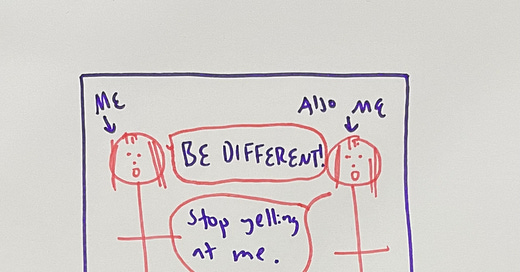 ME
Also ME
BE DIFFERENT!
Stop yelling
at me.